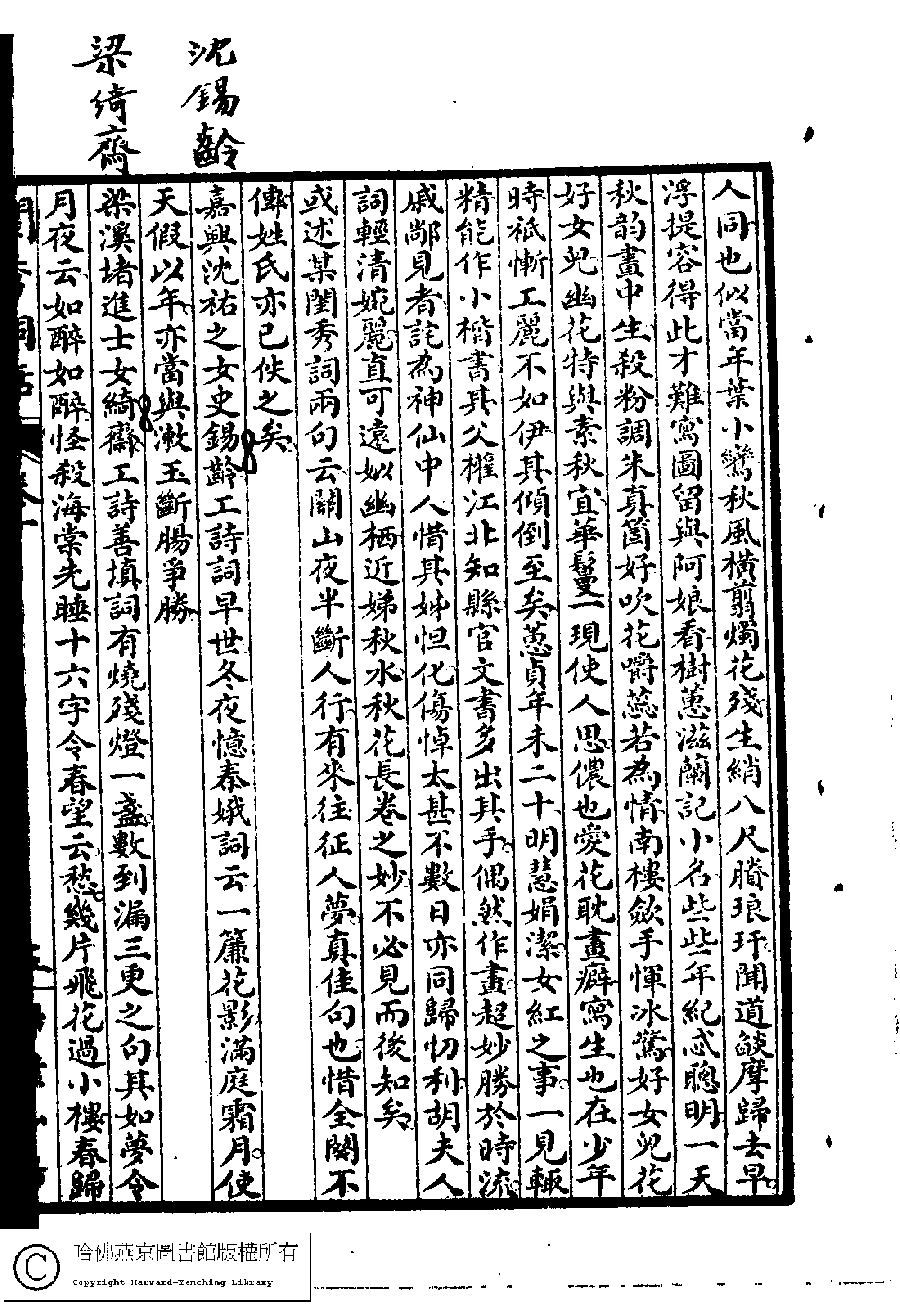 沈錫齡
梁綺齋
人同也似當年葉小鸞秋風橫翦燭花殘生綃八尺賸琅玕聞道談摩歸去早
浮提容得此才難寫圖留與阿娘看樹蕙滋蘭記小名些些年紀忒聰明一天
秋韵畫中生殺粉調朱真箇好吹花嚼蕊若為情南樓斂手惲冰驚好女兒花
好女兒幽花特與素秋宜華鬘一現使人思儂也愛花耽畫癖寫生也在少年
時祇慚工麗不如伊其傾倒至矣蕙貞年未二十明慧娟潔女紅之事一見輒
精能作小楷書其父權江北知縣官文書多出其手偶然作畫超妙勝於時流
戚鄰見者詫為神仙中人惜其姊怛化傷悼太甚不數日亦同歸忉利胡夫人
詞輕清婉麗直可遠姒幽栖近娣秋水秋花長卷之妙不必見而後知矣
或述某閨秀詞兩句云關山夜半斷人行有來往征人夢真佳句也惜全闋不
傳姓氏亦已佚之矣
嘉興沈祐之女史錫齡工詩詞早世冬夜憶秦娥詞云一簾花影滿庭霜月使
天假以年亦當與漱玉斷腸爭勝
梁溪堵進士女綺齋工詩善填詞有燒殘燈一盞數到漏三更之句其如夢令
月夜云如醉如醉怪殺海棠先睡十六字令春望云愁幾片飛花過小樓春歸
哈佛燕京圖書館版權所有
Copyright Harvard-Yenching Library